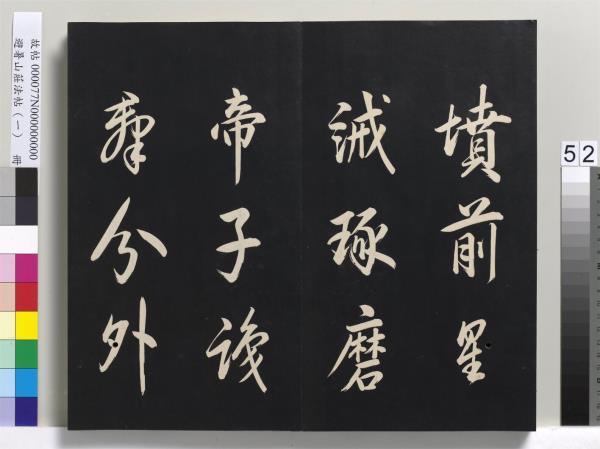 墳前星
誡琢磨
帝子
分外
故帖 000077N000000000
避暑山莊法帖（一） 冊
52